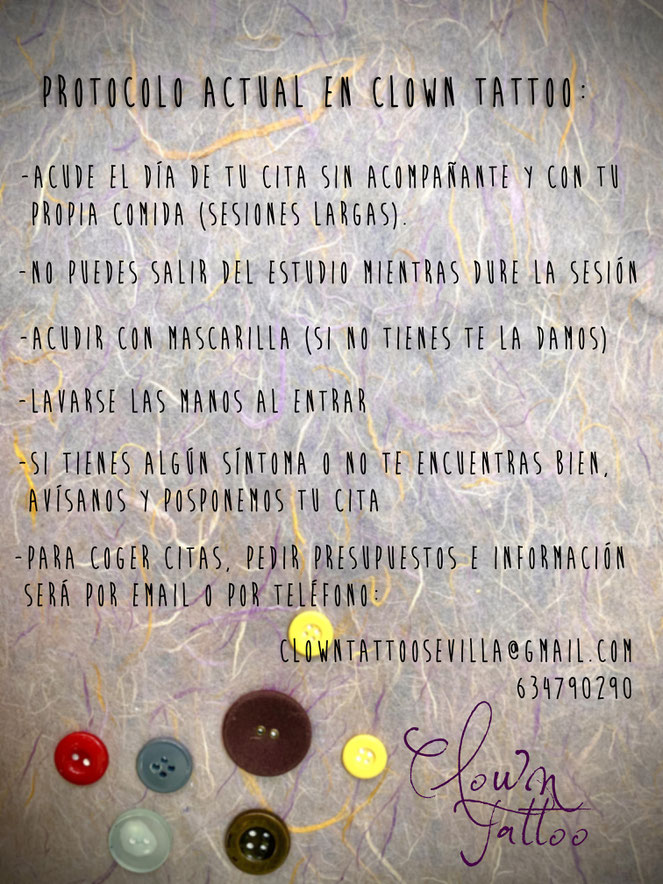 PROTOCOLO ACTUAL EN CLOWN TATTOO:
-ACUDE EL DÍA DE TU CITA SIN ACOMPAÑANTE Y CON TU
PROPIA COMIDA (SESIONES LARGAS).
-NO PUEDES SALIR DEL ESTUDIO MIENTRAS DURE LA SESIÓN
-ACUDIR CON MASCARILLA (SI NO TIENES TE LA DAMOS)
-LAVARSE LAS MANOS AL ENTRAR
-SI TIENES ALGÚN SÍNTOMA O NO TE ENCUENTRAS BIEN,
AVÍSANOS Y POSPONEMOS TU CITA
-PARA COGER CITAS, PEDIR PRESUPUESTOS E INFORMACIÓN
SERÁ POR EMAIL O POR TELÉFONO:
CLOWNTATTOOSEVILLA@GMAIL.COM
634790290
Clown
Tattoo